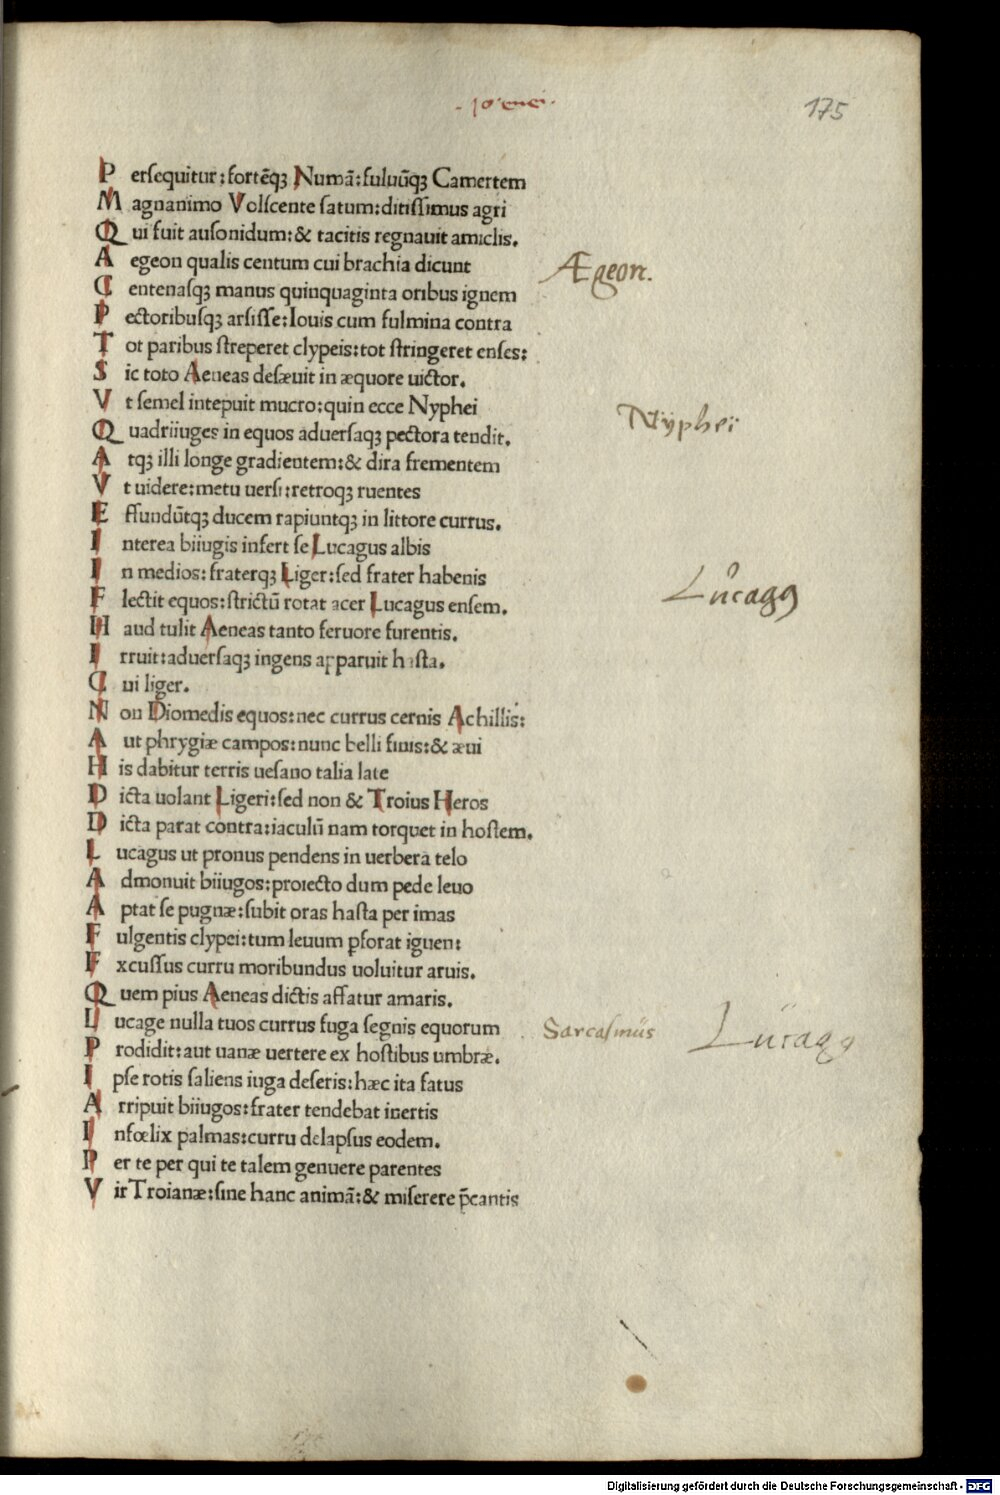 ·10·enei·
175
Persequitur: fortẽqꝫ Numã: fuluũqꝫ Camertem
Magnanimo Volſcente ſatum: ditiſſimus agri
Qui fuit auſonidum: & tacitis regnauit amiclis.
Aegeon qualis centum cui brachia dicunt
Ægeon.
Centenaſqꝫ manus quinquaginta oribus ignem
Pectoribuſqꝫ arſiſſe: Iouis cum fulmina contra
Tot paribus ſtreperet clypeis: tot ſtringeret enſes:
Sic toto Aeneas deſæuit in æquore uictor.
Vt ſemel intepuit mucro: quin ecce Nyphei
Nÿpheï
Quadriiuges in equos aduerſaqꝫ pectora tendit.
Atqꝫ illi longe gradientem: & dira frementem
Vt uidere: metu uerſi: retroqꝫ ruentes
Effundũtqꝫ ducem rapiuntqꝫ in littore currus.
Interea biiugis infert ſe Lucagus albis
In medios: fraterqꝫ Liger: ſed frater habenis
Flectit equos: ſtrictũ rotat acer Lucagus enſem.
Lůcagꝯ
Haud tulit Aeneas tanto feruore furentis.
Irruit: aduerſaqꝫ ingens apparuit haſta.
Cui liger.
Non Diomedis equos: nec currus cernis Achillis:
Aut phrygiæ campos: nunc belli finis: & æui
His dabitur terris ueſano talia late
Dicta uolant Ligeri: ſed non & Troius Heros
Dicta parat contra: iaculũ nam torquet in hoſtem.
Lucagus ut pronus pendens in uerbera telo
Admonuit biiugos: proiecto dum pede leuo
Aptat ſe pugnæ: ſubit oras haſta per imas
Fulgentis clypei: tum leuum pforat iguen:
Fxcuſſus curru moribundus uoluitur aruis.
Quem pius Aeneas dictis affatur amaris.
Lucage nulla tuos currus fuga ſegnis equorum
Sarcaſmüs Lücagꝯ
Prodidit: aut uanæ uertere ex hoſtibus umbræ.
Ipſe rotis ſaliens iuga deſeris: hæc ita fatus
Arripuit biiugos: frater tendebat inertis
Infœlix palmas: curru delapſus eodem.
Per te per qui te talem genuere parentes
Vir Troianæ: ſine hanc animã: & miſerere p̃cantis
Digitalisierung gefördert durch die Deutsche Forschungsgemeinschaft - DFG